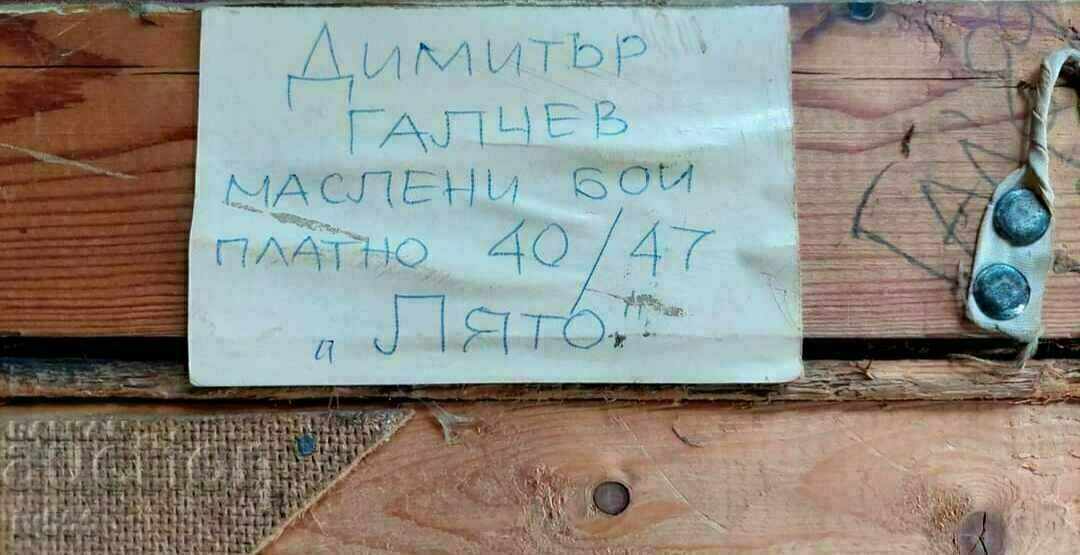 ДИМИТЪР
ГАЛЧЕВ
МАСЛЕНИ БОИ
ПЛАТНО 40/47
„ЛЯТО"